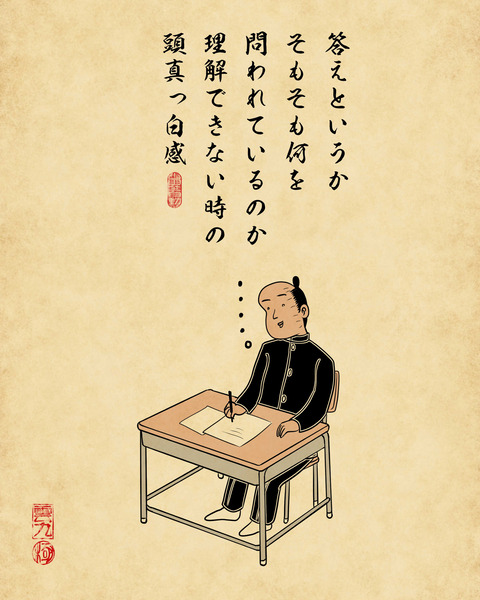 答えというか
そもそも何を
問われているのか
理解できない時の
頭真っ白感